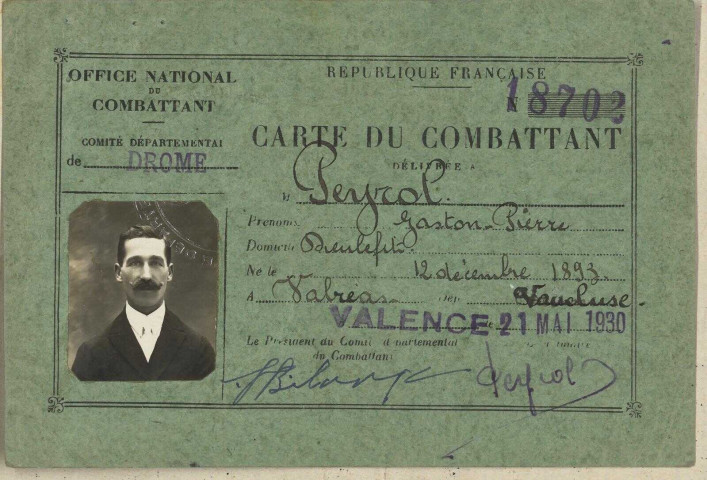 OFFICE NATIONAL
DU
COMBATTANT
COMITÉ DÉPARTEMENTAL
de DROME
RÉPUBLIQUE FRANÇAISE
N 18702
CARTE DU COMBATTANT
DÉLIVRÉE A
M Peyrol.
Prénoms Gaston-Pierre
Domicile Dieulefit.
Né le 12 décembre 1893
A Valreas Dép Vaucluse.
VALENCE 21 MAI 1930
Le Président du Comité départemental
du Combattant
Peyrol